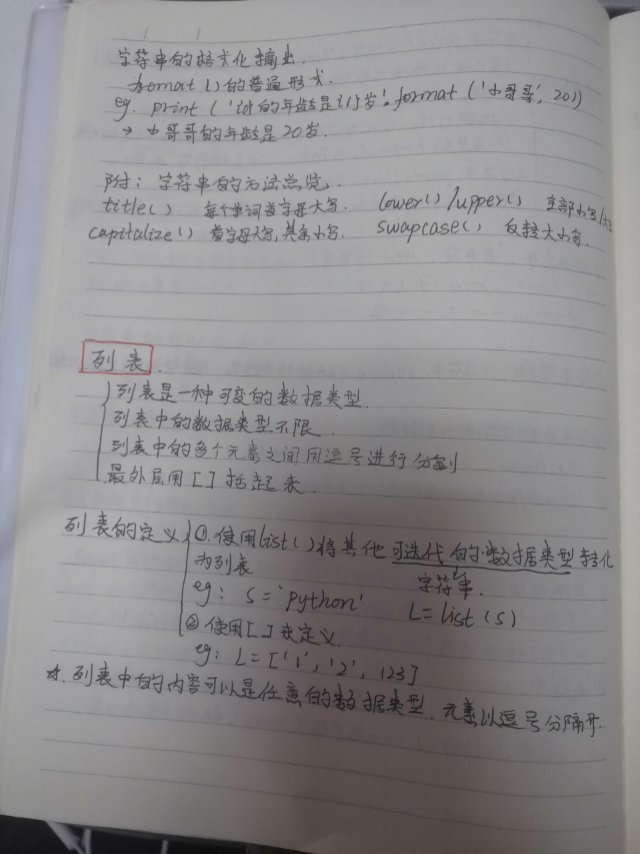 字符串的格式化输出.
format()的普通形式.
eg. print('{}的年龄是{}岁'.format('小哥哥', 20))
→ 小哥哥的年龄是20岁.
附: 字符串的方法总览.
title() 每个单词首字母大写. lower()/upper() 全部小写/大写
capitalize() 首字母大写,其余小写. swapcase() 反转大小写.
列表.
列表是一种可变的数据类型.
列表中的数据类型不限.
列表中的多个元素之间用逗号进行分割
最外层用[]括起来.
列表的定义 ①.使用list()将其他可迭代的数据类型转化
为列表 字符串.
eg: s='python' L=list(s)
②使用[]来定义.
eg: L=['1','2',123]
☆.列表中的内容可以是任意的数据类型.元素以逗号分隔开.